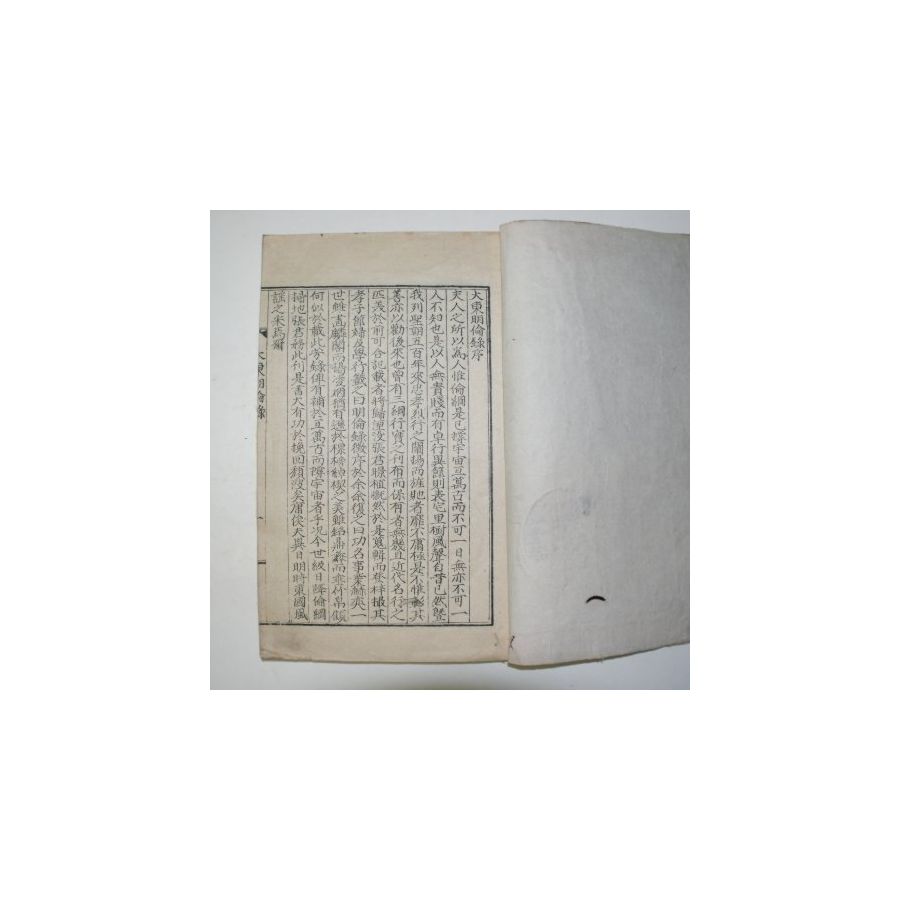 大東明倫錄序
夫人之所以爲人惟倫綱是已蟀宇宙亘萬古而不可一日無亦不可一
人不知也是以人無貴賤而有卓行異節則表宅里樹風聲自昔已然曁
我列聖朝五百年來忠孝烈行之闡揚而旌虵者靡不庸極是不惟彰其
善亦以勸後來也曾有三綱行實之刊布而係有者無幾且近代名行之
匹美於前可合記載者將歸湮沒張君 植慨然於是蒐輯而登梓撮其
孝子節婦及學行 之曰明倫錄徵序於余余復之曰功名事業赫奕一
世雖畵麟閣而揭凌烟猶有遜於 之美雖銘鼎彝而垂竹帛
何似於載此芳錄俾有補於亘萬古而 宇宙者乎况今世級日降倫綱
掃地張君將此刊是書大有功於挽回頹 矣庸俟天與日明時東國風
謠之采焉爾
大東明倫錄